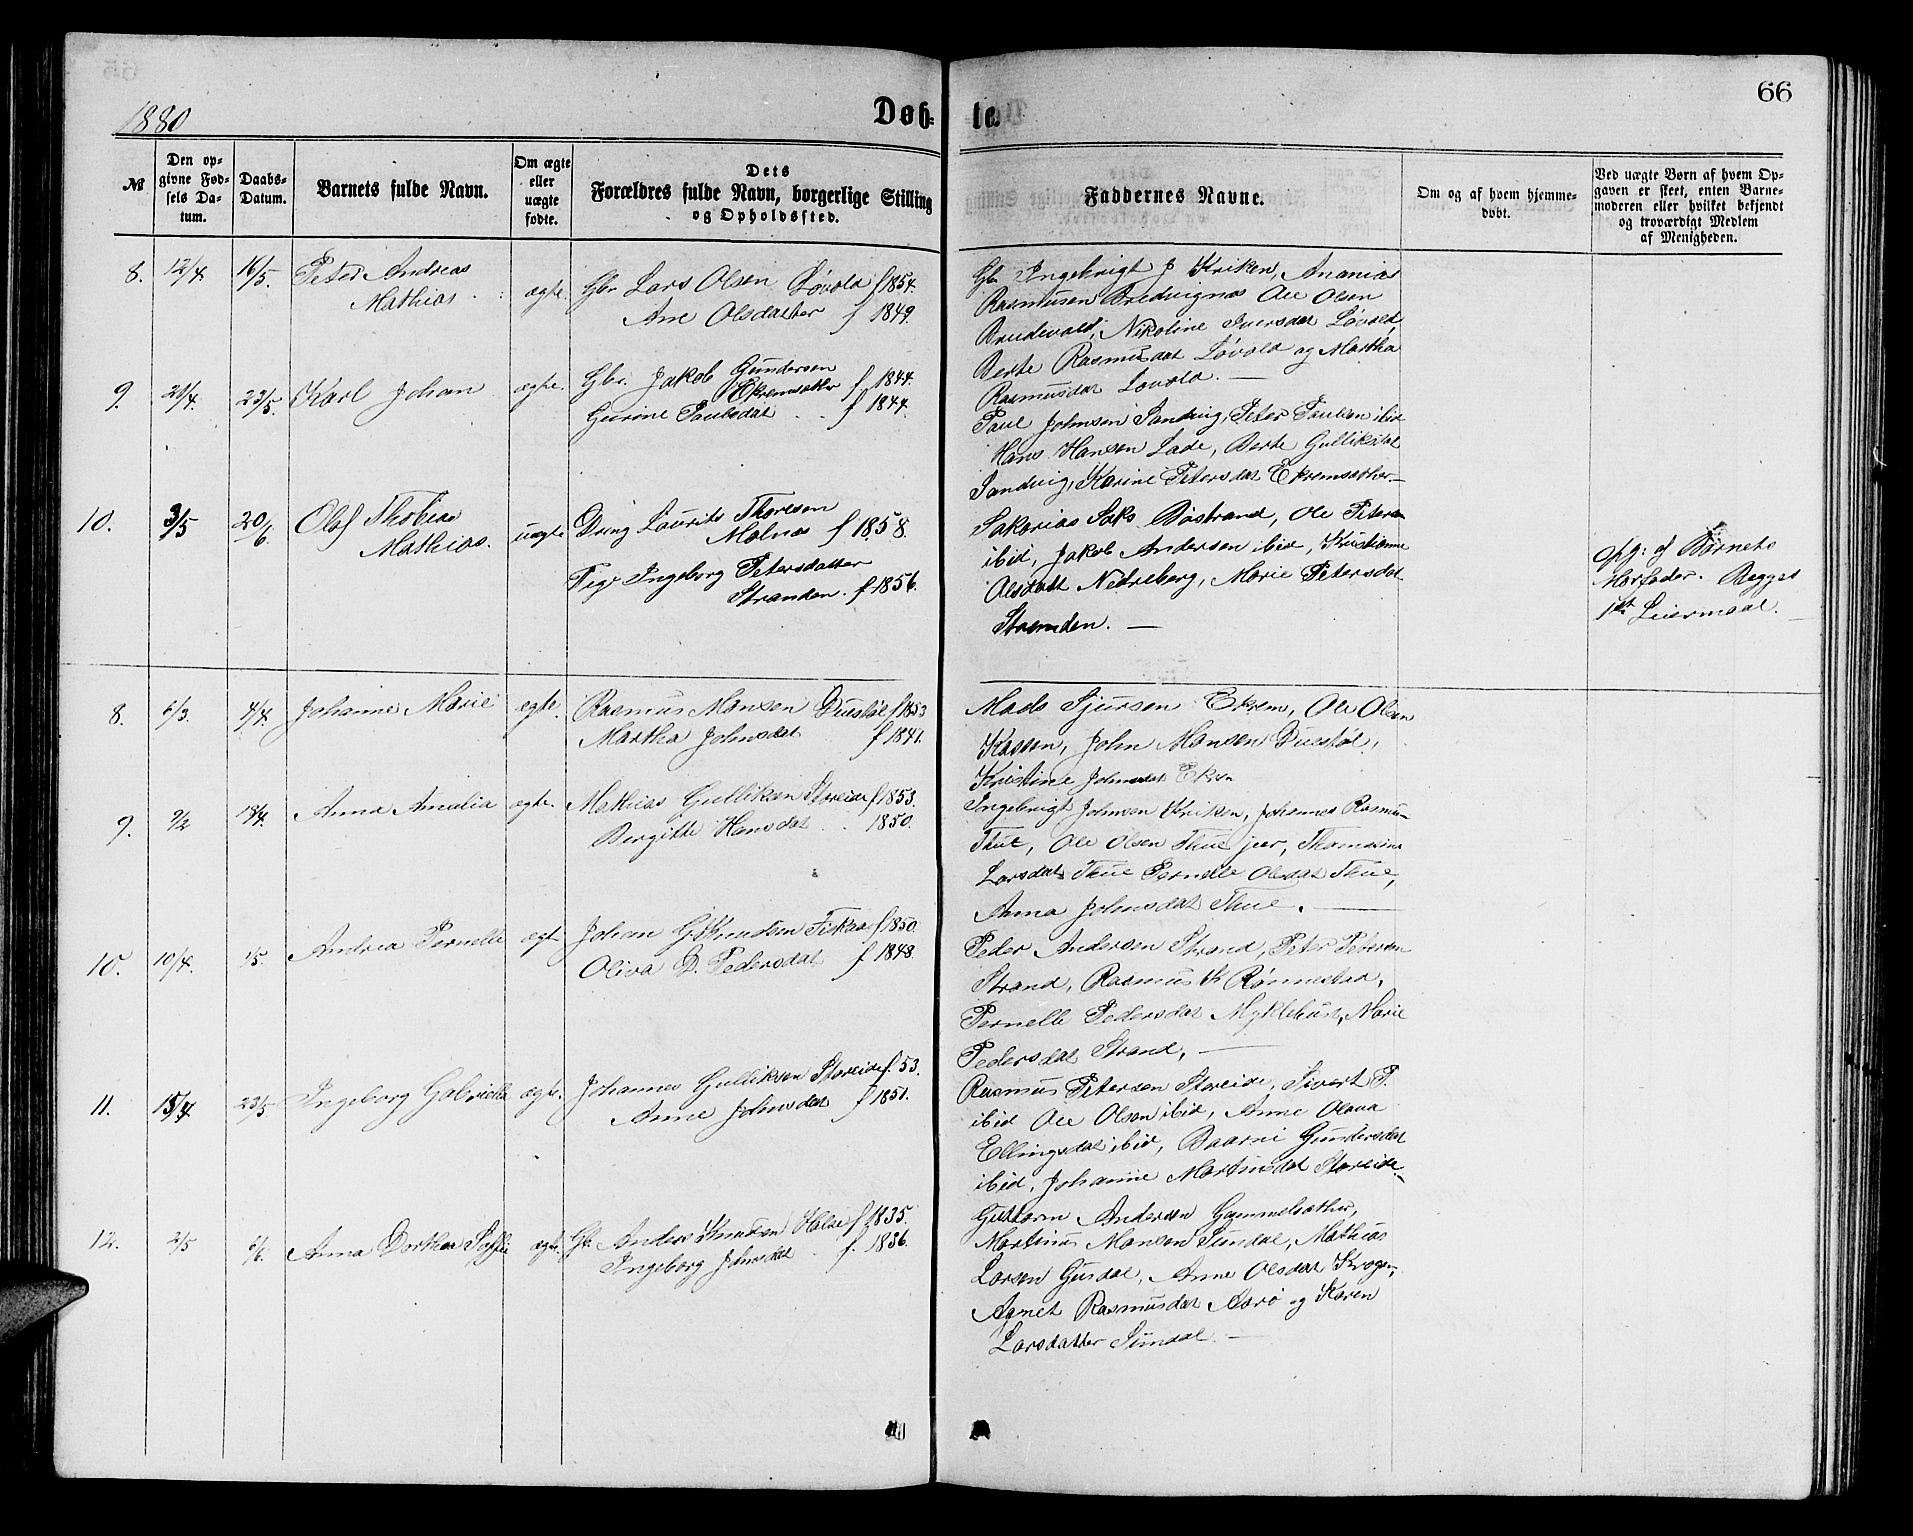 66
1880
Døb= te.
№
Den op-
givne Fød-
sels Da-
tum.
Daabs-
Datum.
Barnets fulde Navn.
Om ægte
eller
uægte
fødte.
Dets
Forældres fulde Navn, borgerlige Stilling
og Opholdssted.
Faddernes Navne.
Om og af hvem hjemme-
døbt.
Ved uægte Børn af hvem Op-
gaven er skeet, enten Barne-
moderen eller hvilket bekjendt
og troværdigt Medlem
af Menigheden.
8. 12/4. 16/5. Peter Andreas
Mathias ægte. Gbr Lars Olsen Løvold f 1854.
Ane Olsdatter f 1849.
Gbr Ingebrigt J Kriken, Ananias
Rasmusen Bredvignæs Ole Olsen
Brudevold, Nikoline Iversdat Løvold,
Berte Rasmusdat Løvold og Martha
Rasmusdat Lovold. —
9. 23/5. Karl Johan ægte. Gbr. Jakob Gundersen
Ekremsæther f 1844.
Gurine Paulsdat f 1844.
Paul Johnsen Sandvig, Peter Paulsen ibid
Hans Hansen Lade, Berte Gulliksdat
Sandvig, Karine Petersdat Ekremsæther —
10. 3/5 20/6. Olaf Thobias
Mathias. uægte Dreng Laurits Thoresen
Molnæs f 1858.
Pige Ingeborg Petersdatter
Stranden. f 1856.
Sakarias Saks Bøstrand, Ole Petersen
ibid, Jakob Andersen ibid, Kristianne
Olsdatt Nedreberg, Marie Petersdat
Stranden. —
opg: af Barnets
Morfader. Begges
1st Leiermaal.
8. 6/3. 4/4. Johanne Marie ægte. Rasmus Monsen Duestøl f 1853
Martha Johnsdat f 1841.
Mads Sjursen Ekrem, Ole Olsen
John Monsen Duestøl,
Kristine Johnsdat
9. 9/2 18/4. Anna Amalia ægte. Mathias Gulliksen Storeide f 1853.
Birgitte Hansdat 1850.
Ingebrigt Johnsen Kriken, Johannes Rasmus-
Thue, Ole Olsen Thue
Larsdat Thue Pernelle Olsdat Thue,
Anna Johnsdat Thue. —
10. 10/4. 1/5. Andrea Pernelle ægt Johan G Knudsen Fiskaa f 1850.
Oliva D. Pedersdat f 1848.
Peder Andersen Strand, Peter Petersen
Strand, Rasmus K Rønnestad,
Pernelle Pedersdat Myklebust, Marie
Pedersdat Strand, —
11. 15/4 23/5 Ingeborg Gabrielle ægte. Johannes Gulliksen Storeide f. 53.
Anne Johnsdat f 1851.
Rasmus Petersen Storeide, Sivert P.
ibid Ole Olsen ibid, Anne Olava
Ellingsdat ibid, Gundersdat
ibid, Johanne Martinsdat Storeide. —
12. 2/5 6/6. Anna Dorthea Soffie ægte. Gbr. Anders Knudsen f 1835.
Ingeborg Johnsdat f. 1836.
Guttorm Andersen Gammelsæther,
Martinus Monsen Sundal, Mathias
Larsen Gusdal, Anne Olsdat
Agnet Rasmusdat Aarø og Karen
Larsdatter Sundal. —